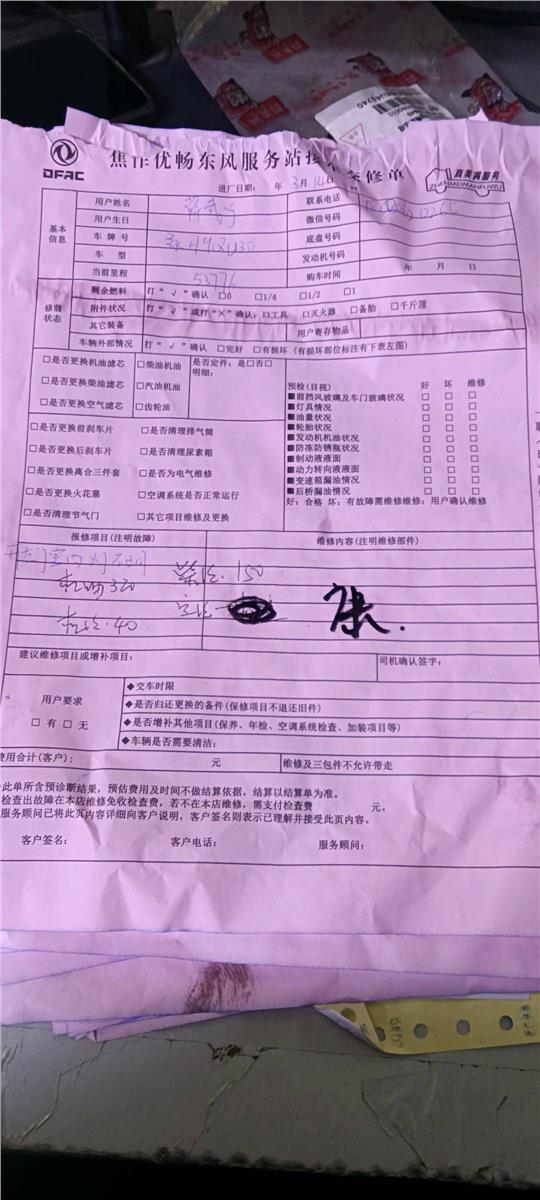 DFAC
焦作优畅东风服务站接车修单
真美满服务
ZHENMEIMANFUWU
进厂日期: 年 3月14日
基本信息
用户姓名
联系电话
用户生日
微信号码
车牌号
底盘号码
车型
发动机号码
当前里程 53776
购车时间 年 月 日
修前状态
剩余燃料 打“√”确认 □0 □1/4 □1/2 □1
附件状况 打“√”或打“×”确认:□工具 □灭火器 □备胎 □千斤顶
其它装备
用户寄存物品
车辆外部情况 打“√”确认 □完好 □有损坏 (有损坏部位标注有下表左图)
□是否更换机油滤芯 □柴油机油 是否定件: 是□否□
□是否更换柴油滤芯 □汽油机油 明细:
□是否更换空气滤芯 □齿轮油
□是否更换前刹车片 □是否清理排气筒
□是否更换后刹车片 □是否清理尿素箱
□是否更换离合三件套 □是否为电气维修
□是否更换火花塞 □空调系统是否正常运行
□是否清理节气门 □其它项目维修及更换
预检(目视) 好 坏 维修
■前挡风玻璃及车门玻璃状况 □ □ □
■灯具情况 □ □ □
■油量状况 □ □ □
■轮胎状况 □ □ □
■发动机机油状况 □ □ □
■防冻防锈瓶状况 □ □ □
■制动液液面 □ □ □
■动力转向液液面 □ □ □
■变速箱漏油情况 □ □ □
■后桥漏油情况 □ □ □
好: 合格 坏: 有故障需维修维修: 用户确认维修
报修项目(注明故障)
维修内容(注明维修部件)
室内灯不明
机油320 柴滤.150
机滤.40
建议维修项目或增补项目:
司机确认签字:
用户要求
□有□无
◆交车时限
◆是否归还更换的备件(保修项目不退还旧件)
◆是否增补其他项目(保养、年检、空调系统检查、加装项目等)
◆车辆是否需要清洁:
费用合计(客户): 元
维修及三包件不允许带走
此单所含预诊断结果,预估费用及时间不做结算依据,结算以结算单为准。
检查出故障在本店维修免收检查费,若不在本店维修,需支付检查费 元。
服务顾问已将此页内容详细向客户说明,客户签名则表示已理解并接受此页内容。
客户签名: 客户电话: 服务顾问: